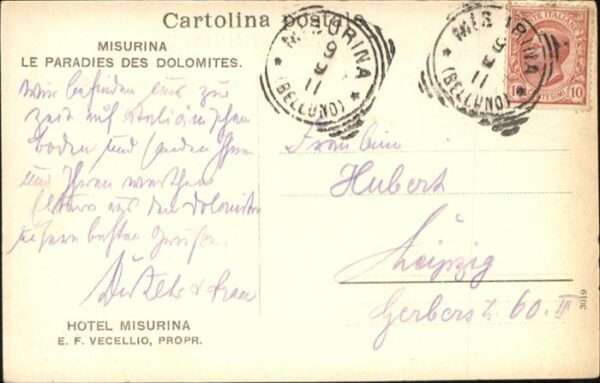 Cartolina postale
MISURINA
LE PARADIES DES DOLOMITES.
Wir befinden uns zur
Zeit auf italiänischen
Boden und senden Ihnen
und Ihren werthen
Eltern aus den Dolomiten
unsere besten Grüße.
& Frau
HOTEL MISURINA
E. F. VECELLIO, PROPR.
MISURINA
9 8 11
(BELLUNO)
MISURINA
9 8 11
(BELLUNO)
POSTE ITALIANE
10
10
Fräulein
Hubert
Leipzig
Gerberstr. 60. III
3019